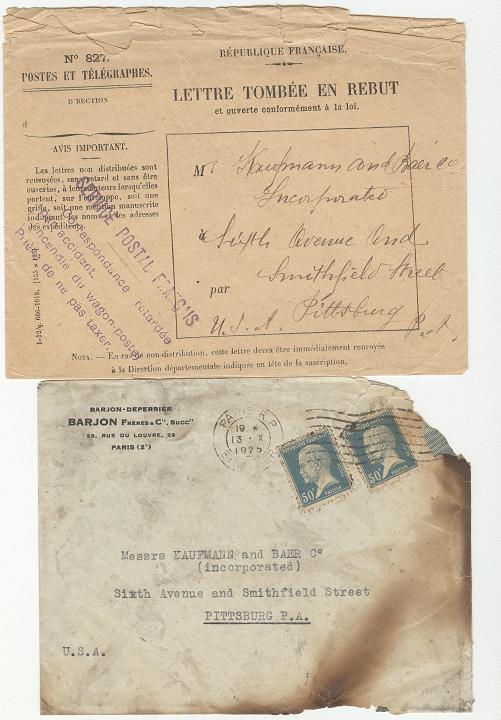 Nº 827.
POSTES ET TÉLÉGRAPHES.
D'RECTION
d
AVIS IMPORTANT.
Les lettres non distribuées sont
renvoyées, sans retard et sans être
ouvertes, à leurs auteurs lorsqu'elles
portent, sur l'enveloppe, soit une
griffe, soit une mention manuscrite
indiquant les noms et les adresses
des expéditeurs.
1-12/q. 666-1918. [155 × 120]
RÉPUBLIQUE FRANÇAISE.
LETTRE TOMBÉE EN REBUT
et ouverte conformément à la loi.
M Kaufmann and Baer Co
Incorporated
à Sixth Avenue and
Smithfield Street
par Pittsburg
U.S.A. P.A.
SERVICE POSTAL FRANÇAIS
Correspondance retardée
accident.
Incendie du wagon-postal
Prière de ne pas taxer.
NOTA. — En cas de non-distribution, cette lettre devra être immédiatement renvoyée
à la Direction départementale indiquée en tête de la suscription.
BARJON-DEPERRIER
BARJON FRÈRES & Cie, Succrs
29, RUE DU LOUVRE, 29
PARIS (2e)
PARIS R.P.
19 *
13 - X
1925
RÉPUBLIQUE FRANÇAISE
50c
PASTEUR
RÉPUBLIQUE FRANÇAISE
50c
PASTEUR
Messrs KAUFMANN and BAER Co
(incorporated)
Sixth Avenue and Smithfield Street
PITTSBURG P.A.
U.S.A.